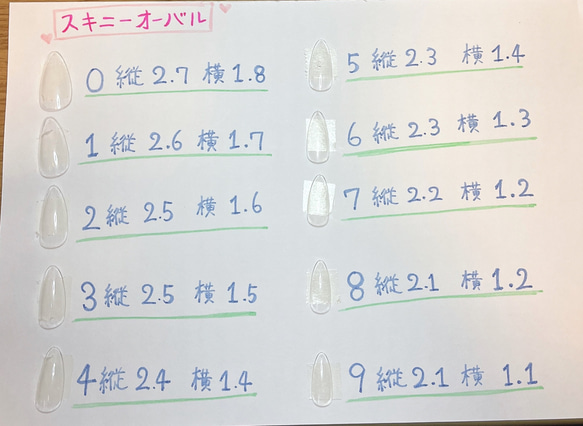 スキニーオーバル
0 縦 2.7 横 1.8
1 縦 2.6 横 1.7
2 縦 2.5 横 1.6
3 縦 2.5 横 1.5
4 縦 2.4 横 1.4
5 縦 2.3 横 1.4
6 縦 2.3 横 1.3
7 縦 2.2 横 1.2
8 縦 2.1 横 1.2
9 縦 2.1 横 1.1